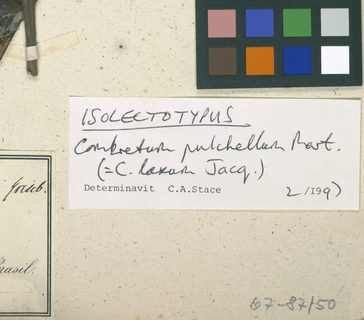 ISOLECTOTYPUS
Combretum pulchellum Mart.
(= C. laxum Jacq.)
Determinavit C.A.Stace 2/1997
Brasil.
67-87/50